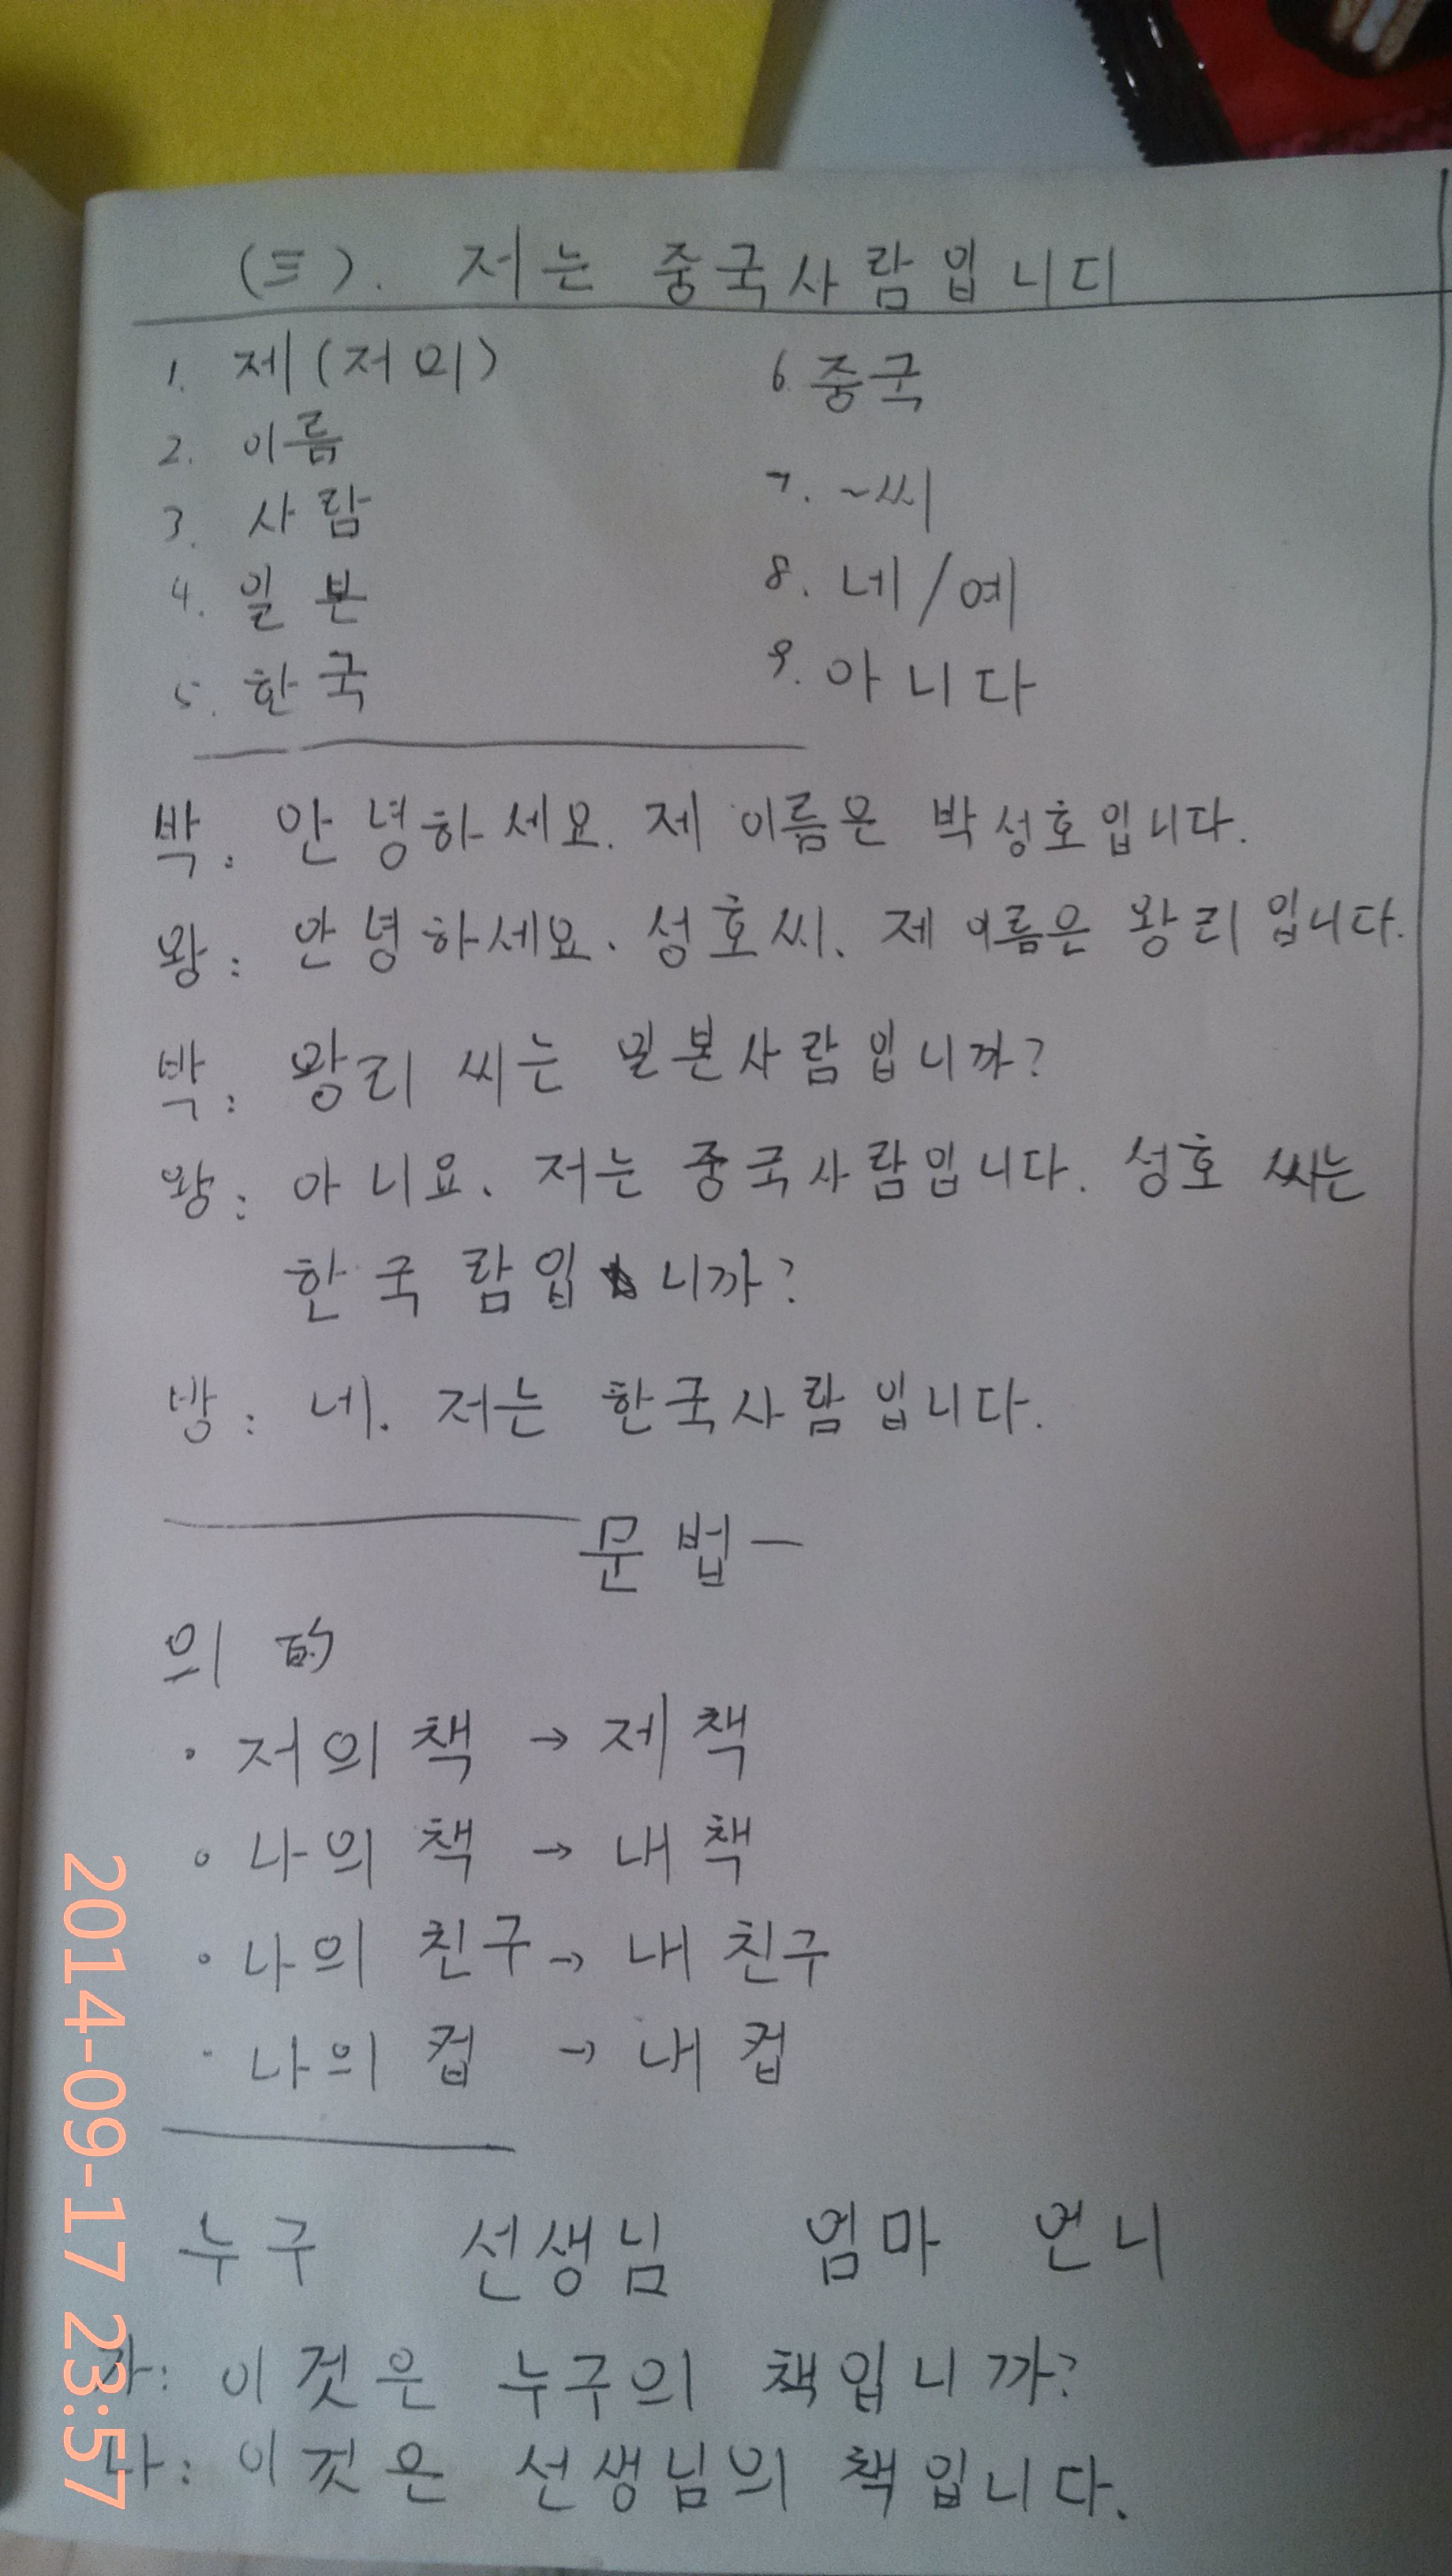 (三). 저는 중국사람입니디
1. 제(저의)
2. 이름
3. 사람
4. 일본
5. 한국
6. 중국
7. ~씨
8. 네/예
9. 아니다
박: 안녕하세요. 제 이름은 박성호입니다.
왕: 안녕하세요. 성호 씨. 제 이름은 왕리입니다.
박: 왕리 씨는 일본사람입니까?
왕: 아니요. 저는 중국사람입니다. 성호 씨는
한국람입니까?
방: 네. 저는 한국사람입니다.
문법一
의 的
· 저의 책 → 제 책
· 나의 책 → 내 책
· 나의 친구 → 내 친구
· 나의 컵 → 내 컵
누구 선생님 엄마 언니
가: 이것은 누구의 책입니까?
나: 이것은 선생님의 책입니다.
2014-09-17 23:57